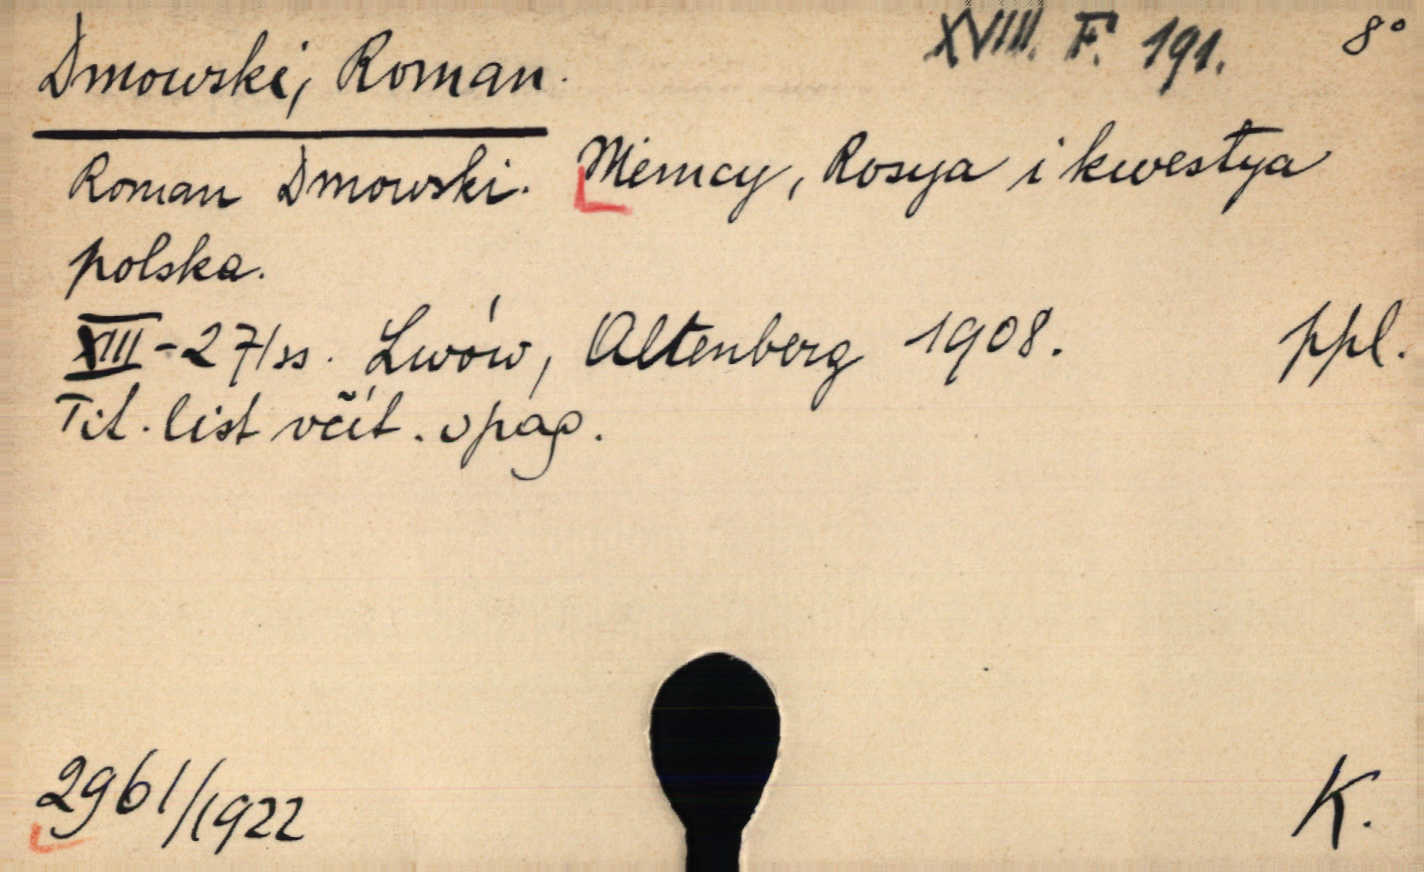 Dmowski, Roman.
XVIII. F. 191. 8°
Roman Dmowski. Niemcy, Rosya i kwestya
polska.
XIII-271ss. Lwów, Altenberg 1908. ppl.
Tit. list včít. v pag.
2961/1922
K.